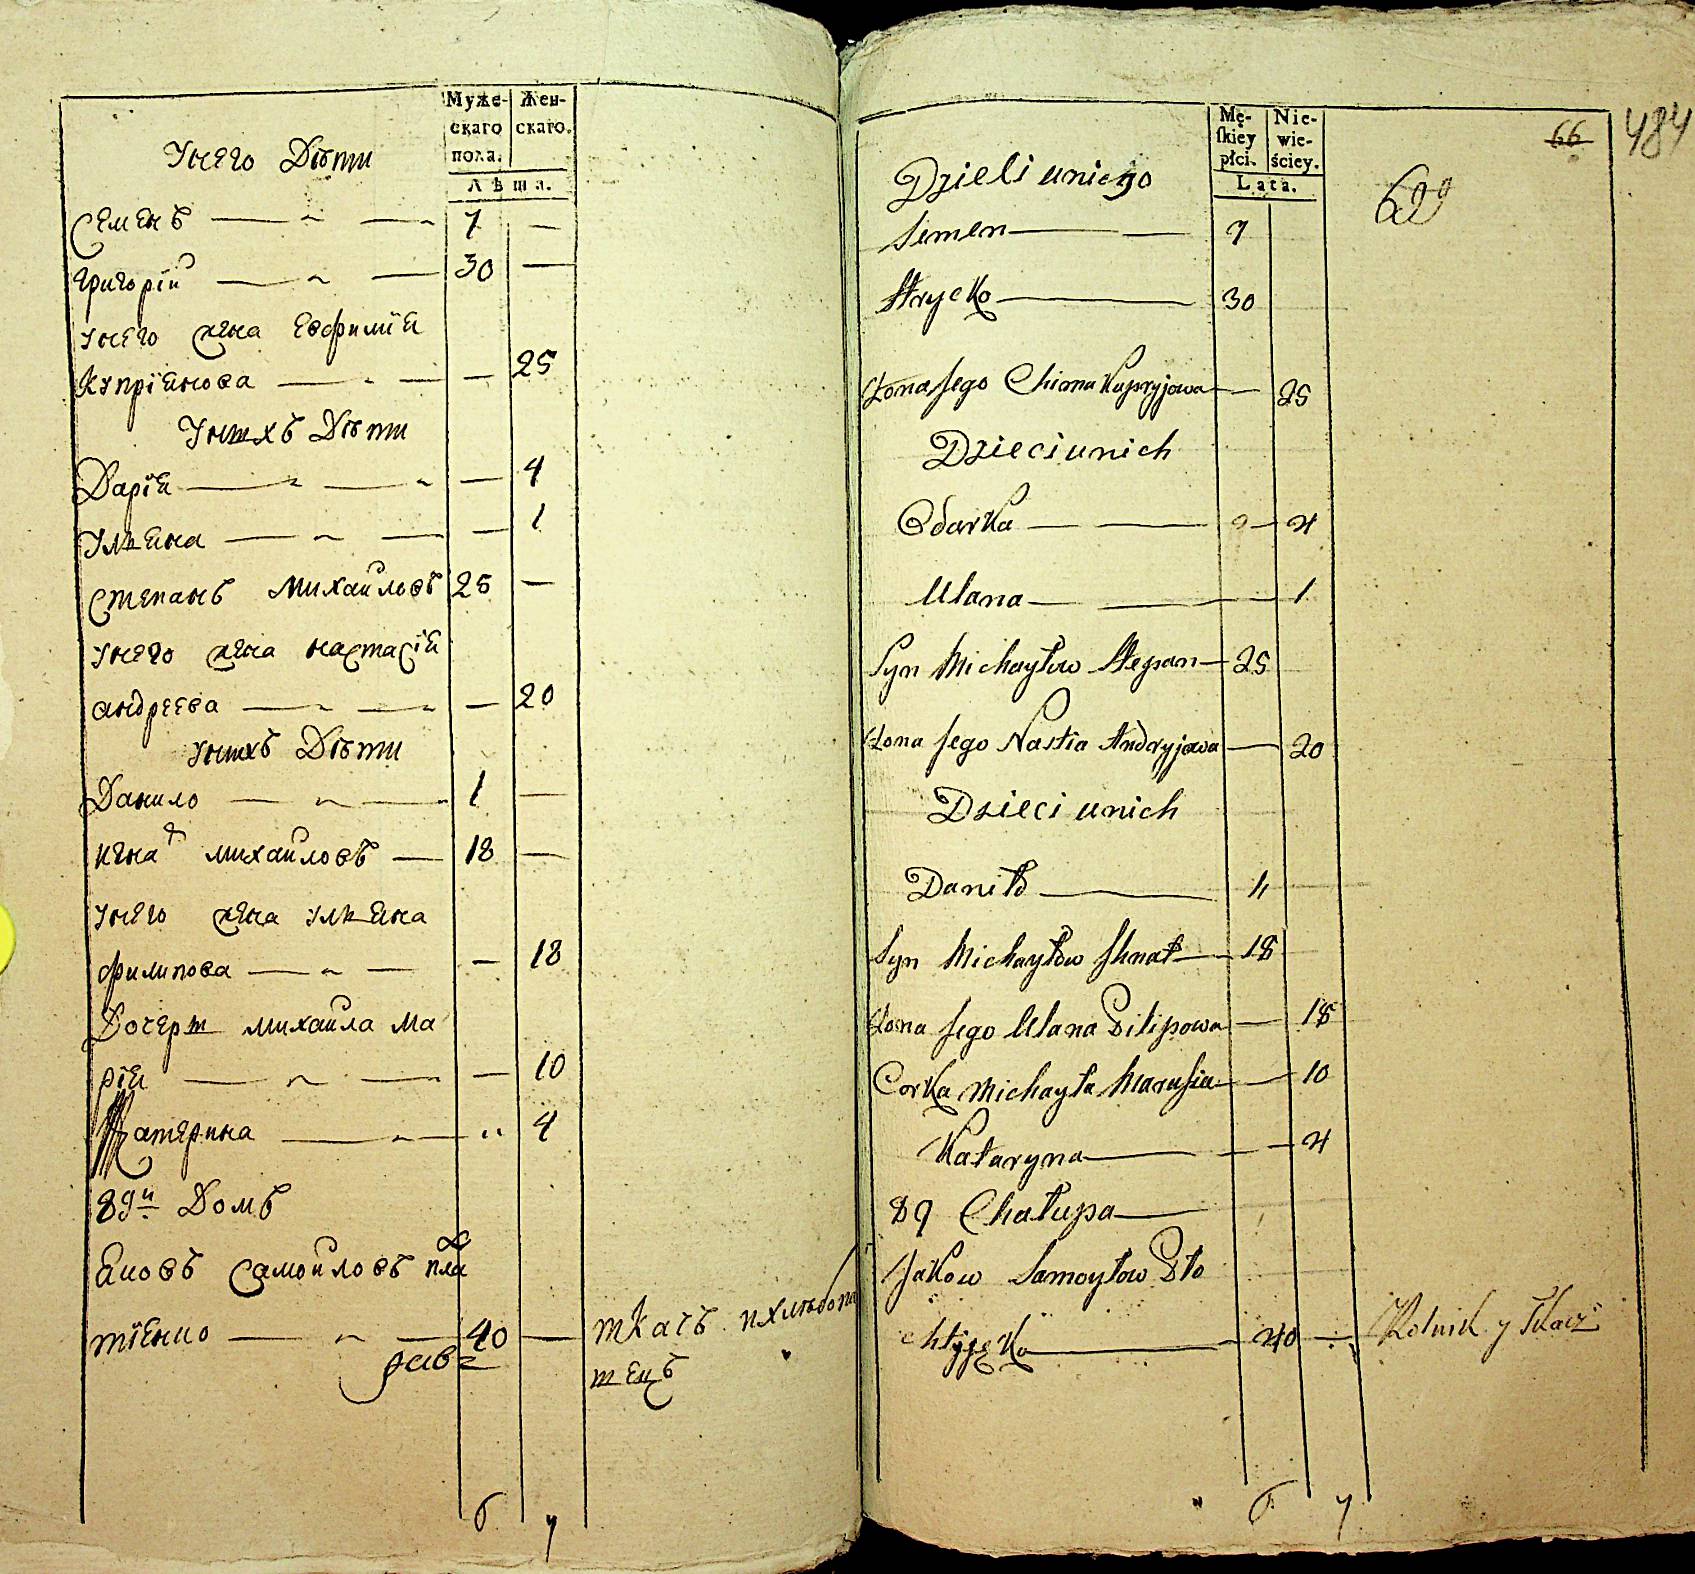 Муже-
скаго
пола.
Жен-
скаго.
Лѣта.
Унего Дѣти
Семенъ 7 —
Григорій 30 —
Унего жена Евфимія
Купріянова — 25
Унихъ Дѣти
Дарія — 4
Ульяна — 1
Степанъ Михайловъ 25 —
Унего жена Настасія
Андреева — 20
Унихъ Дѣти
Данило 1 —
Игнат Михайловъ 18 —
Унего жена Ульяна
Филипова — 18
Дочери Михайла Ма
рія — 10
Катерина 4
89й Домъ
Яковъ Самойловъ Пла
тіенко 40 —
ткачъ и хлѣбопа
шецъ
6 7
Mę-
skiey
płci.
Nie-
wie-
ściey.
Lata.
66
484
Dzieci uniego
Semen 7
Hrycko 30
Żona Jego Chima Kupryjowa — 25
Dzieci unich
Odarka — 4
Ulana — 1
Syn Michayłow Stepan 25
Żona Jego Nastia Andryjowa — 20
Dzieci unich
Daniło 1
Syn Michayłow Ihnat 18
Żona Jego Ulana Pilipowa — 18
Corka Michayła Marusia — 10
Kataryna — 4
89 Chałupa
Jakow Samoyłow Pło
40 — Rolnik y Tkacz
6 7